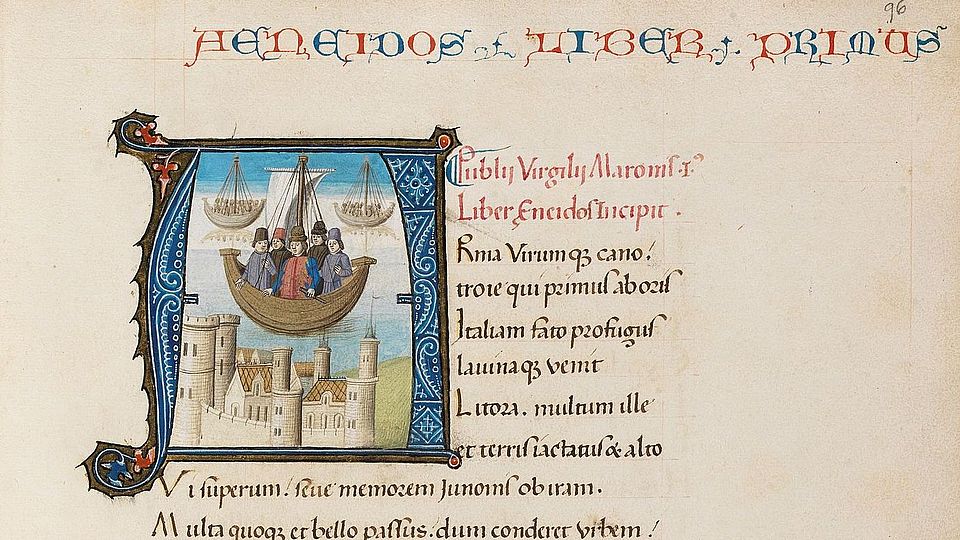 96
AENEIDOS LIBER PRIMUS
Publij Virgilij Maronis .I.
Liber Eneidos Incipit .
Rma Virumqȝ cano /
troie qui primus ab oris
Italiam fato profugus
lauinaqȝ venit
Litora . multum ille
et terris iactatus & alto
Vi superum / seue memorem Junonis ob iram .
Multa quoqȝ et bello passus . dum conderet vrbem /